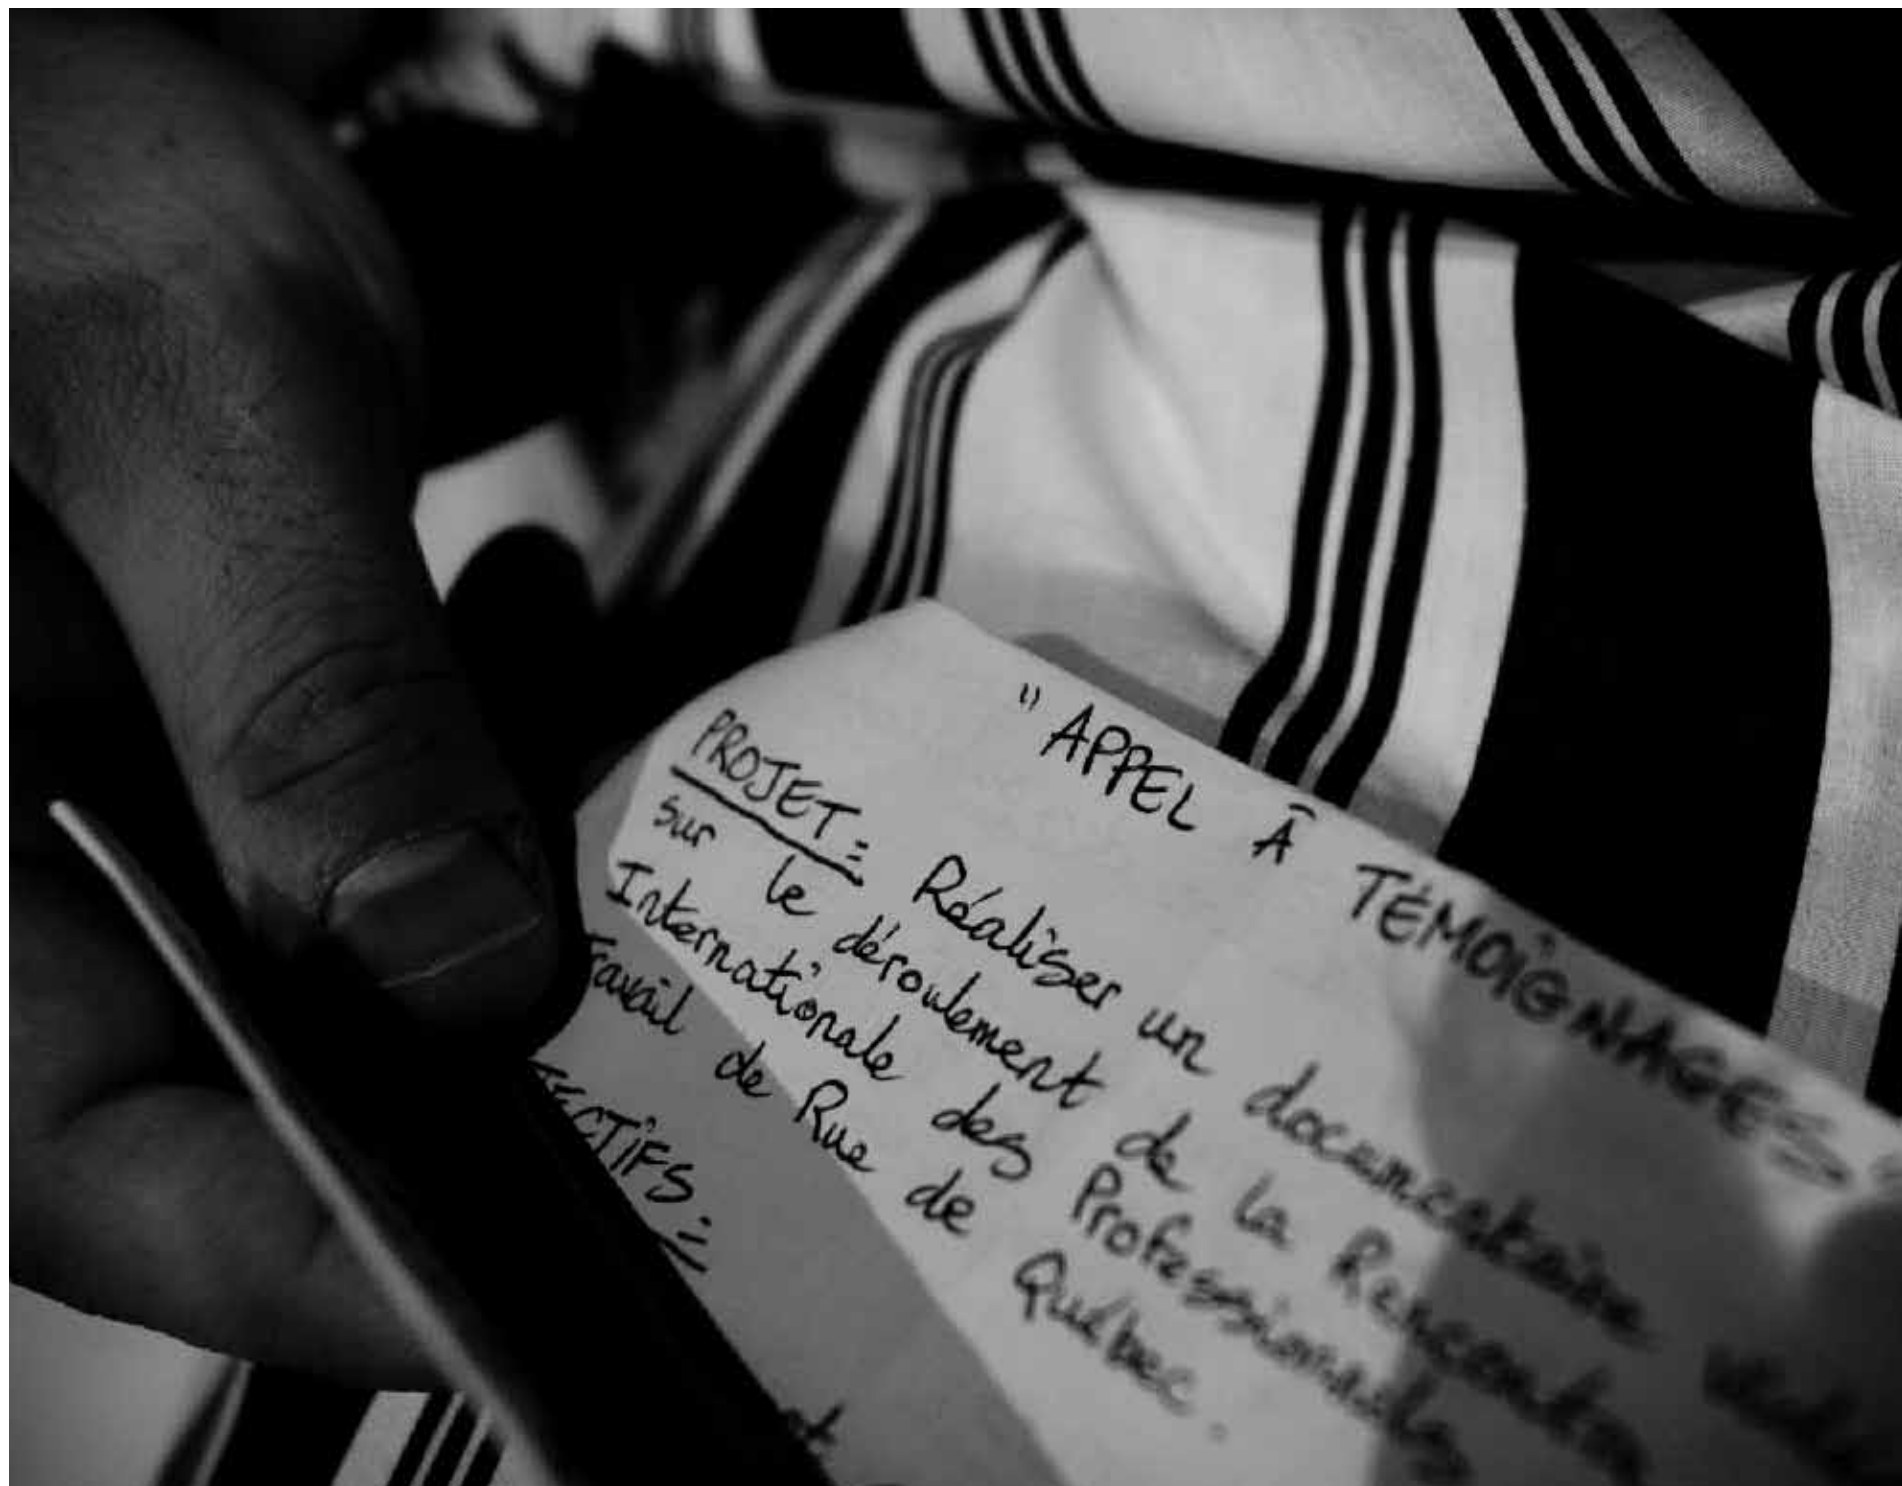 "APPEL À TÉMOIGNAGES"
PROJET : Réaliser un documentaire
sur le déroulement de la Rencontre
Internationale des Professionnels
Travail de Rue de Québec.
ECTIFS :